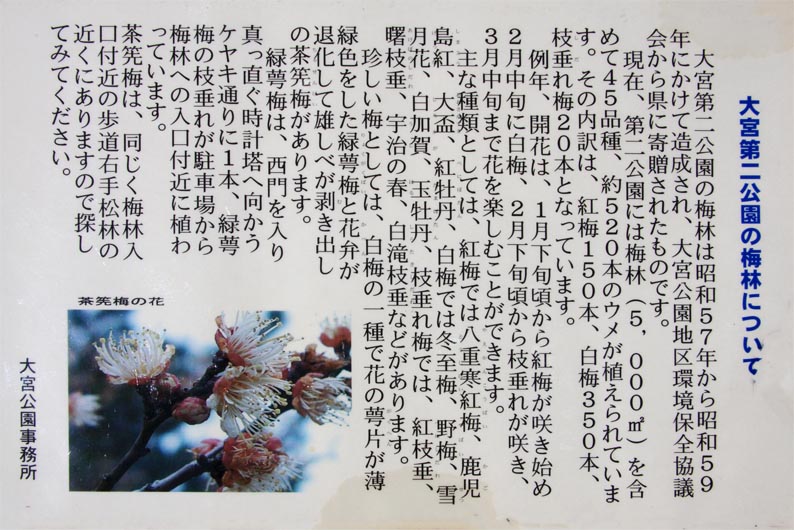 大宮第二公園の梅林について
大宮第二公園の梅林は昭和５７年から昭和５９
年にかけて造成され、大宮公園地区環境保全協議
会から県に寄贈されたものです。
現在、第二公園には梅林（５，０００㎡）を含
めて４５品種、約５２０本のウメが植えられていま
す。その内訳は、紅梅１５０本、白梅３５０本、
枝垂れ梅２０本となっています。
例年、開花は、１月下旬頃から紅梅が咲き始め
２月中旬に白梅、２月下旬頃から枝垂れが咲き、
３月中旬まで花を楽しむことができます。
主な種類としては、紅梅では八重寒紅梅、鹿児
島紅、大盃、紅牡丹、白梅では冬至梅、野梅、雪
月花、白加賀、玉牡丹、枝垂れ梅では、紅枝垂、
曙枝垂、宇治の春、白滝枝垂などがあります。
珍しい梅としては、白梅の一種で花の萼片が薄
緑色をした緑萼梅と花弁が
退化して雄しべが剥き出し
の茶筅梅があります。
緑萼梅は、西門を入り
真っ直ぐ時計塔へ向かう
ケヤキ通りに１本、緑萼
梅の枝垂れが駐車場から
梅林への入口付近に植わ
っています。
茶筅梅は、同じく梅林入
口付近の歩道右手松林の
近くにありますので探し
てみてください。
茶筅梅の花
大宮公園事務所